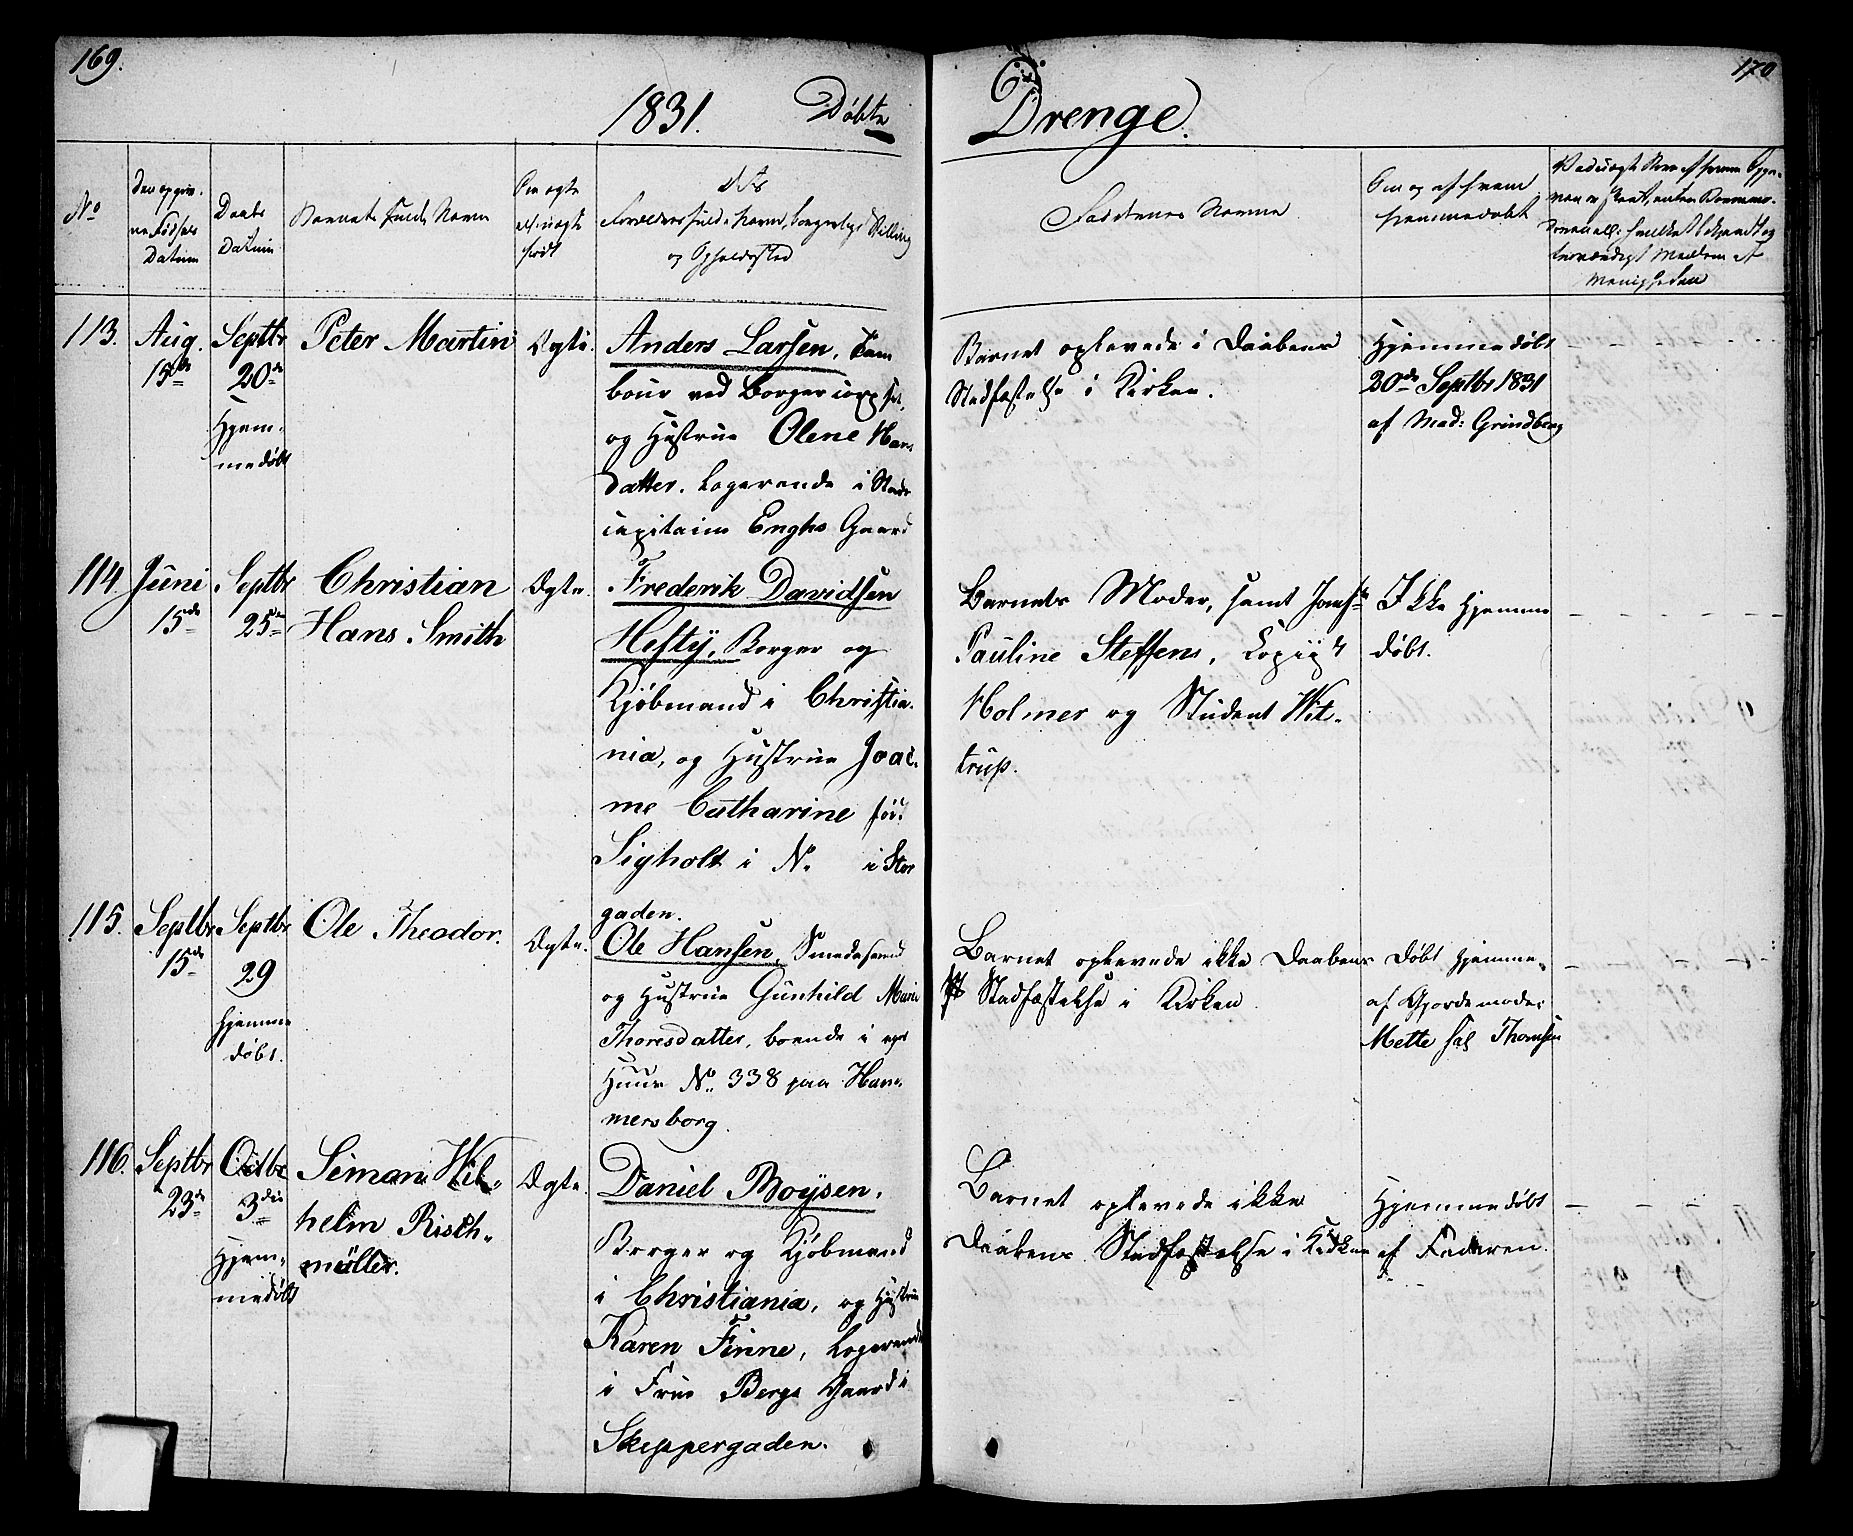 169.
170
1831. Døbte Drenge.
No
Den opgiv-
ne Fødsels
Datum
Daabs
Datum
Barnets fulde Navn
Om ægte
el. uægte
født
Forældres fulde Navn, borgerlige Stilling
og Opholdssted
Faddernes Navne
Om og af hvem
hjemmedøbt
113.
Aug.
15de
Septbr
20de
Hjem-
medøbt
Peter Martin
Ægte.
Anders Larsen, Tam
bour ved Borgercorpset,
og Hustrue Olene Han
datter. Logerende i Stads
capitaine Enghs Gaard
Barnet oplevede i Daabens
Stadfæstelse i Kirken.
Hjemmedøbt
20de Septbr 1831
af Mad: Grindberg
114.
Juni
15de
Septbr
25de
Christian
Hans Smith
Ægte.
Frederik Davidsen
Hefty, Borger og
Kjøbmand i Christia-
nia, og Hustrue Joac-
me Catharine fød.
Sigholt i No i Stor
gaden.
Barnets Moder, samt Jomfr
Pauline Steffens, Copiist
Holmer og Student Wit-
trup.
Ikke hjemme
døbt.
115.
Septbr
15de
Septbr
29
hjemme
døbt.
Ole Theodor.
Ægte.
Ole Hansen, Smedesvend
og Hustrue Gunhild Marie
Thoresdatter, boende i eget
Huus No. 338 paa Ham-
mersborg.
Barnet oplevede ikke Daabens
Stadfæstelse i Kirken
Døbt hjemme
af Gjordemoder
Mette sal Thomsen
116.
Septbr
23de
Octbr
3die
Hjem-
medøbt
Siman Wil-
helm Risch-
müller.
Ægte.
Daniel Boysen,
Borger og Kjøbmand
i Christiania, og Hustrue
Karen Finne, logerende
i Frue Bergs Gaard i
Skippergaden.
Barnet oplevede ikke
Daabens Stadfæstelse i Kirken
Hjemmedøbt
af Faderen.